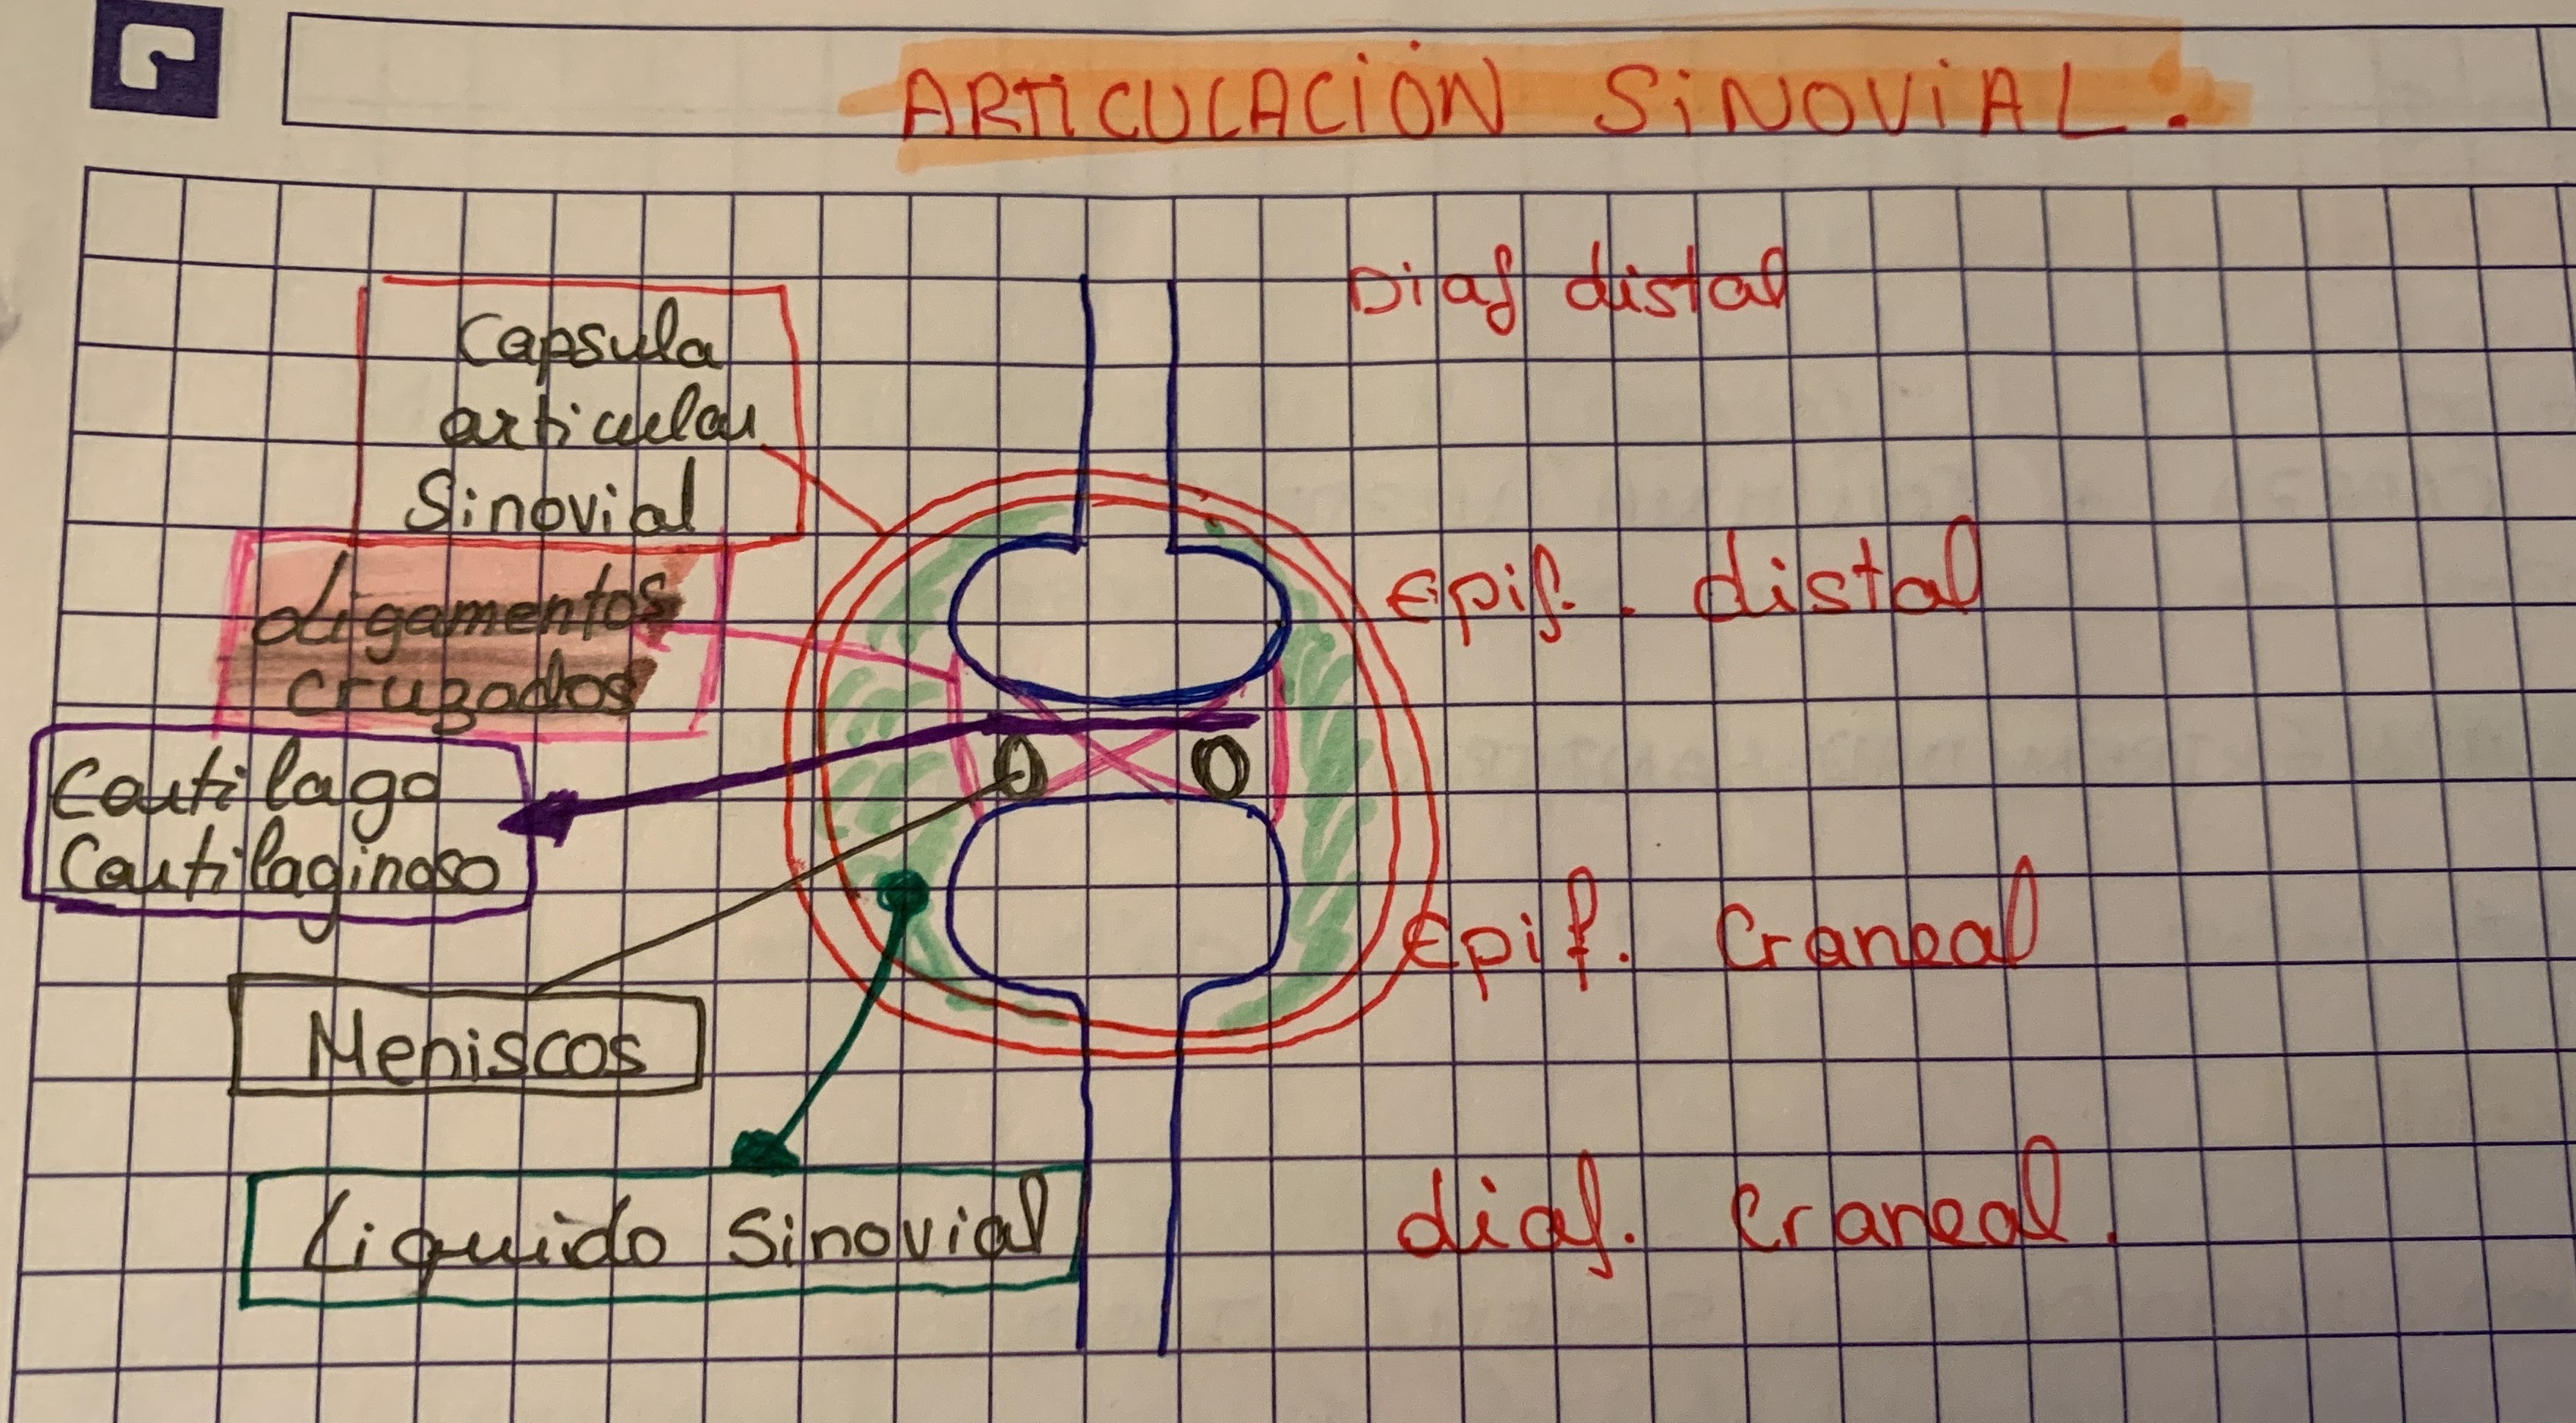 ARTICULACIÓN SINOVIAL:
Diaf distal
Capsula
articular
Sinovial
Epif. distal
Ligamentos
cruzados
Cartilago
Cartilaginoso
Epif. Craneal
Meniscos
diaf. Craneal.
Liquido Sinovial